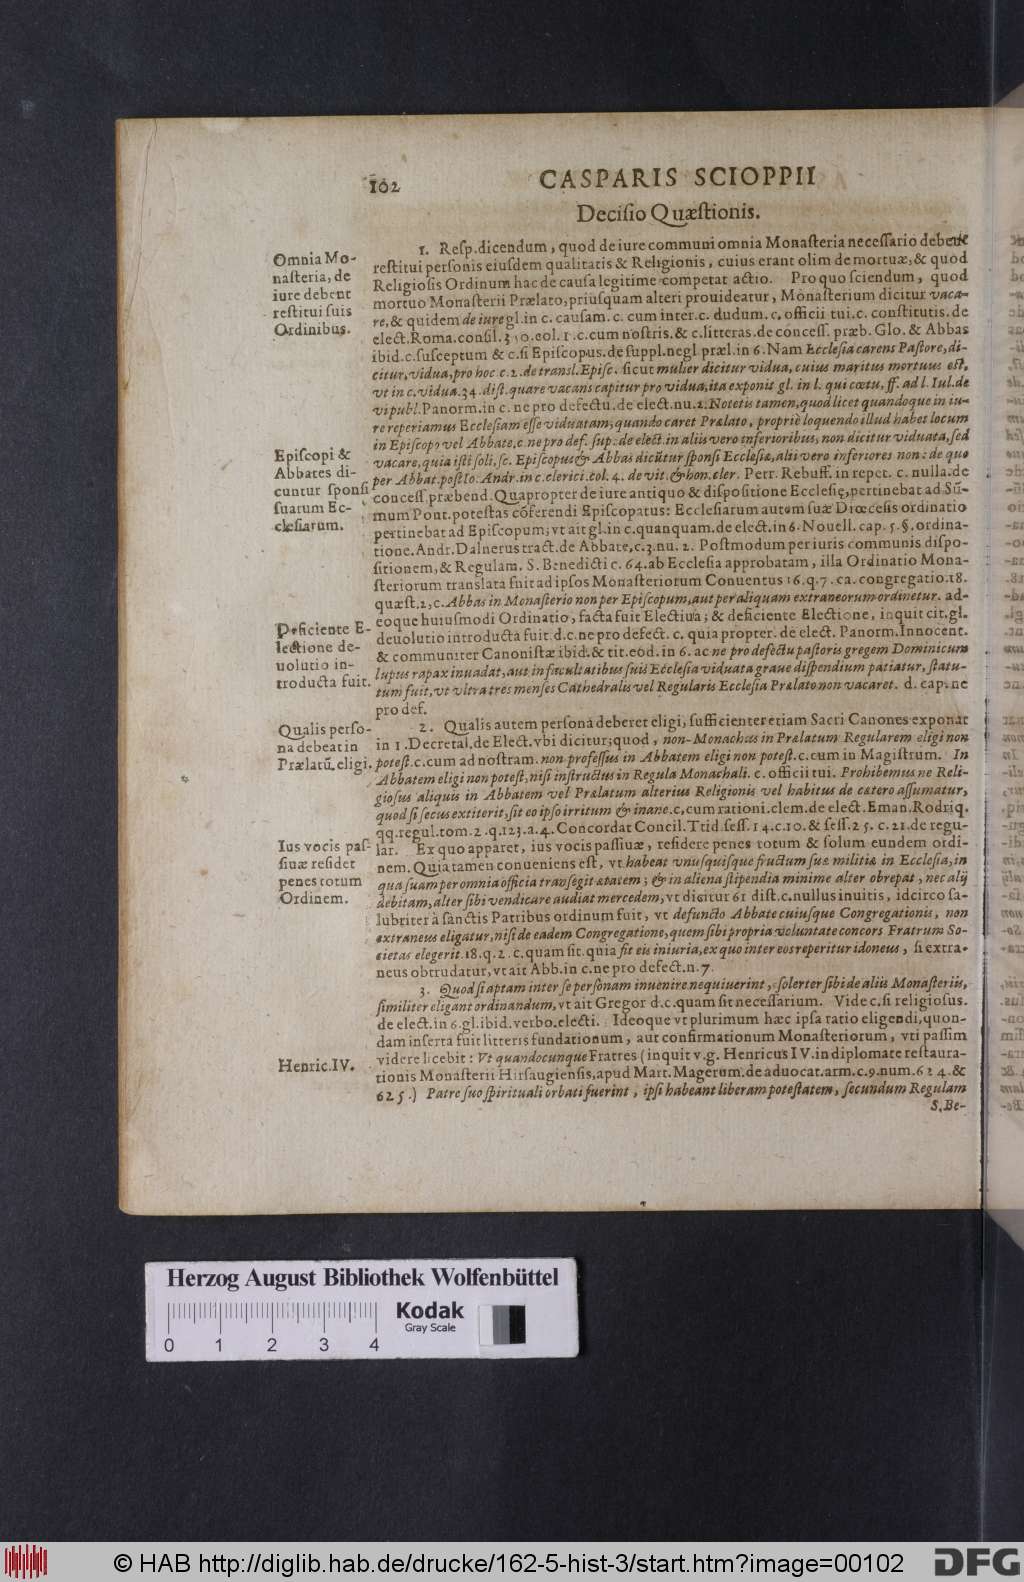 102
CASPARIS SCIOPPII
Deciſio Quæſtionis.
Omnia Mo-
naſteria, de
iure debent
reſtitui ſuis
Ordinibus.
1. Reſp. dicendum, quod de iure communi omnia Monaſteria neceſſario debent
reſtitui perſonis eiuſdem qualitatis & Religionis, cuius erant olim demortuæ, & quòd
Religioſis Ordinum hac de cauſa legitime competat actio. Pro quo ſciendum, quod
mortuo Monaſterii Prælato, priuſquam alteri prouideatur, Monaſterium dicitur vaca-
re, & quidem de iure gl. in c. cauſam. c. cum inter. c. dudum. c. officii tui. c. conſtitutis. de
elect. Roma. conſil. 3 col. 1. c. cum noſtris. & c. litteras. de conceſſ. præb. Glo. & Abbas
ibid. c. ſuſceptum & c. ſi Epiſcopus. de ſuppl. negl. præl. in 6. Nam Eccleſia carens Paſtore, di-
citur, vidua, pro hoc. c. 2. de transl. Epiſc. ſicut mulier dicitur vidua, cuius maritus mortuus eſt,
vt in c. vidua. 34. diſt. quare vacans capitur pro vidua, ita exponit gl. in l. qui cœtu, ff. ad l. Iul. de
vi publ. Panorm. in c. ne pro defectu. de elect. nu. 2. Notetis tamen, quod licet quandoque in iu-
re reperiamus Eccleſiam eſſe viduatam; quando caret Prælato, propriè loquendo illud habet locum
in Epiſcopo vel Abbate, c. ne pro def. ſup. de elect. in aliis vero inferioribus, non dicitur viduata, ſed
Epiſcopi &
Abbates di-
cuntur ſponſi
ſuarum Ec-
cleſiarum.
vacare, quia iſti ſoli, ſc. Epiſcopus & Abbas dicūtur ſponſi Eccleſiæ, alii vero inferiores non: de quo
per Abbat. poſt Io. Andr. in c. clerici. col. 4. de vit. & hon. cler. Petr. Rebuff. in repet. c. nulla. de
conceſſ. præbend. Quapropter de iure antiquo & diſpoſitione Eccleſię, pertinebat ad Sū-
mum Pont. poteſtas cōferendi Epiſcopatus: Eccleſiarum autem ſuæ Diœceſis ordinatio
pertinebat ad Epiſcopum; vt ait gl. in c. quanquam. de elect. in 6. Nouell. cap. 5. §. ordina-
tione. Andr. Dalnerus tract. de Abbate, c. 3. nu. 2. Poſtmodum per iuris communis diſpo-
ſitionem, & Regulam. S. Benedicti c. 64. ab Eccleſia approbatam, illa Ordinatio Mona-
ſteriorum translata fuit ad ipſos Monaſteriorum Conuentus 16. q. 7. ca. congregatio. 18.
quæſt. 2, c. Abbas in Monaſterio non per Epiſcopum, aut per aliquam extraneorum ordinetur. ad-
Deficiente E-
lectione de-
uolutio in-
troducta fuit.
eoque huiuſmodi Ordinatio, facta fuit Electiua; & deficiente Electione, inquit cit. gl.
deuolutio introducta fuit. d. c. ne pro defect. c. quia propter. de elect. Panorm. Innocent.
& communiter Canoniſtæ ibid. & tit. eod. in 6. ac ne pro defectu paſtoris gregem Dominicum
lupus rapax inuadat, aut in facultatibus ſuis Eccleſia viduata graue diſpendium patiatur, ſtatu-
tum fuit, vt vltra tres menſes Cathedralis vel Regularis Eccleſia Prælato non vacaret. d. cap. ne
pro def.
Qualis perſo-
na debeat in
Prælatū eligi.
2. Qualis autem perſona deberet eligi, ſufficienter etiam Sacri Canones exponāt
in 1. Decretal. de Elect. vbi dicitur; quod, non-Monachus in Prælatum Regularem eligi non
poteſt. c. cum ad noſtram. non profeſſus in Abbatem eligi non poteſt. c. cum in Magiſtrum. In
Abbatem eligi non poteſt, niſi inſtructus in Regula Monachali. c. officii tui. Prohibemus ne Reli-
gioſus aliquis in Abbatem vel Prælatum alterius Religionis vel habitus de cætero aſſumatur,
quod ſi ſecus extiterit, ſit eo ipſo irritum & inane. c. cum rationi. clem. de elect. Eman. Rodriq.
qq. regul. tom. 2. q. 123. a. 4. Concordat Concil. Trid ſeſſ. 14. c. 10. & ſeſſ. 25. c. 21. de regu-
Ius vocis paſ-
ſiuæ reſidet
penes totum
Ordinem.
lar. Ex quo apparet, ius vocis paſſiuæ, reſidere penes totum & ſolum eundem ordi-
nem. Quia tamen conueniens eſt, vt habeat vnuſquiſque fructum ſuæ militiæ in Eccleſia, in
qua ſuam per omnia officia tranſegit ætatem; & in aliena ſtipendia minime alter obrepat, nec alij
debitam, alter ſibi vendicare audiat mercedem, vt dicitur 61 diſt. c. nullus inuitis, idcirco ſa-
lubriter à ſanctis Patribus ordinum fuit, vt defuncto Abbate cuiuſque Congregationis, non
extraneus eligatur, niſi de eadem Congregatione, quem ſibi propria voluntate concors Fratrum So-
cietas elegerit. 18. q. 2. c. quam ſit. quia fit eis iniuria, ex quo inter eos reperitur idoneus, ſi extra-
neus obtrudatur, vt ait Abb. in c. ne pro defect. n. 7.
3. Quod ſi aptam inter ſe perſonam inuenire nequiuerint, ſolerter ſibi de aliis Monaſteriis,
ſimiliter eligant ordinandum, vt ait Gregor d. c. quam ſit neceſſarium. Vide c. ſi religioſus.
de elect. in 6. gl. ibid. verbo. electi. Ideoque vt plurimum hæc ipſa ratio eligendi, quon-
dam inſerta fuit litteris fundationum, aut confirmationum Monaſteriorum, vti paſſim
Henric. IV.
videre licebit: Vt quandocunque Fratres (inquit v.g. Henricus IV. in diplomate reſtaura-
tionis Monaſterii Hirſaugienſis, apud Mart. Magerum. de aduocat. arm. c. 9. num. 624. &
625.) Patre ſuo ſpirituali orbati fuerint, ipſi habeant liberam poteſtatem, ſecundum Regulam
S. Be-
Herzog August Bibliothek Wolfenbüttel
Kodak
Gray Scale
0 1 2 3 4
© HAB http://diglib.hab.de/drucke/162-5-hist-3/start.htm?image=00102
DFG